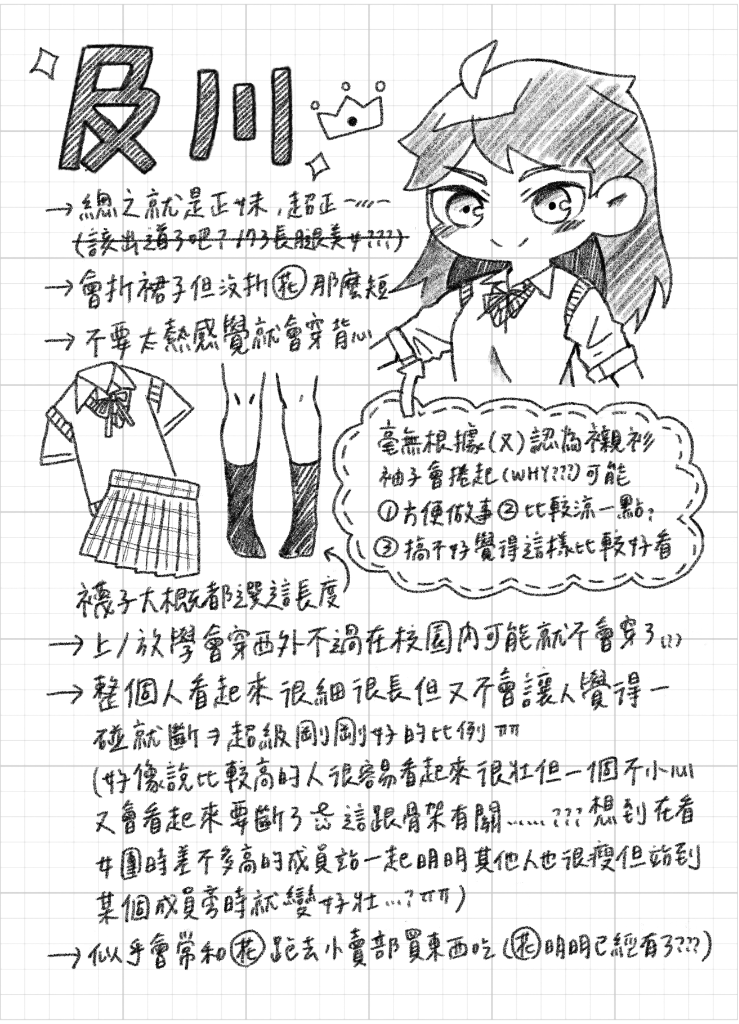 及川
→總之就是正妹,超正~~~
(該出道了吧?173長腿美女???)
→會折裙子但沒折花那麼短
→不要太熱感覺就會穿背心
毫無根據(X)認為襯衫
袖子會捲起(WHY???)可能
①方便做事②比較涼一點?
③搞不好覺得這樣比較好看
襪子大概都選這長度
→上/放學會穿西外不過在校園內可能就不會穿了
→整個人看起來很細很長但又不會讓人覺得一
碰就斷→超級剛剛好的比例ππ
(好像說比較高的人很容易看起來很壯但一個不小心
又會看起來要斷了 這跟骨架有關……???想到在看
女團時差不多高的成員站一起明明其他人也很瘦但站到
某個成員旁時就變好壯...?ππ)
→似乎會常和花跑去小賣部買東西吃(花明明已經有了???)